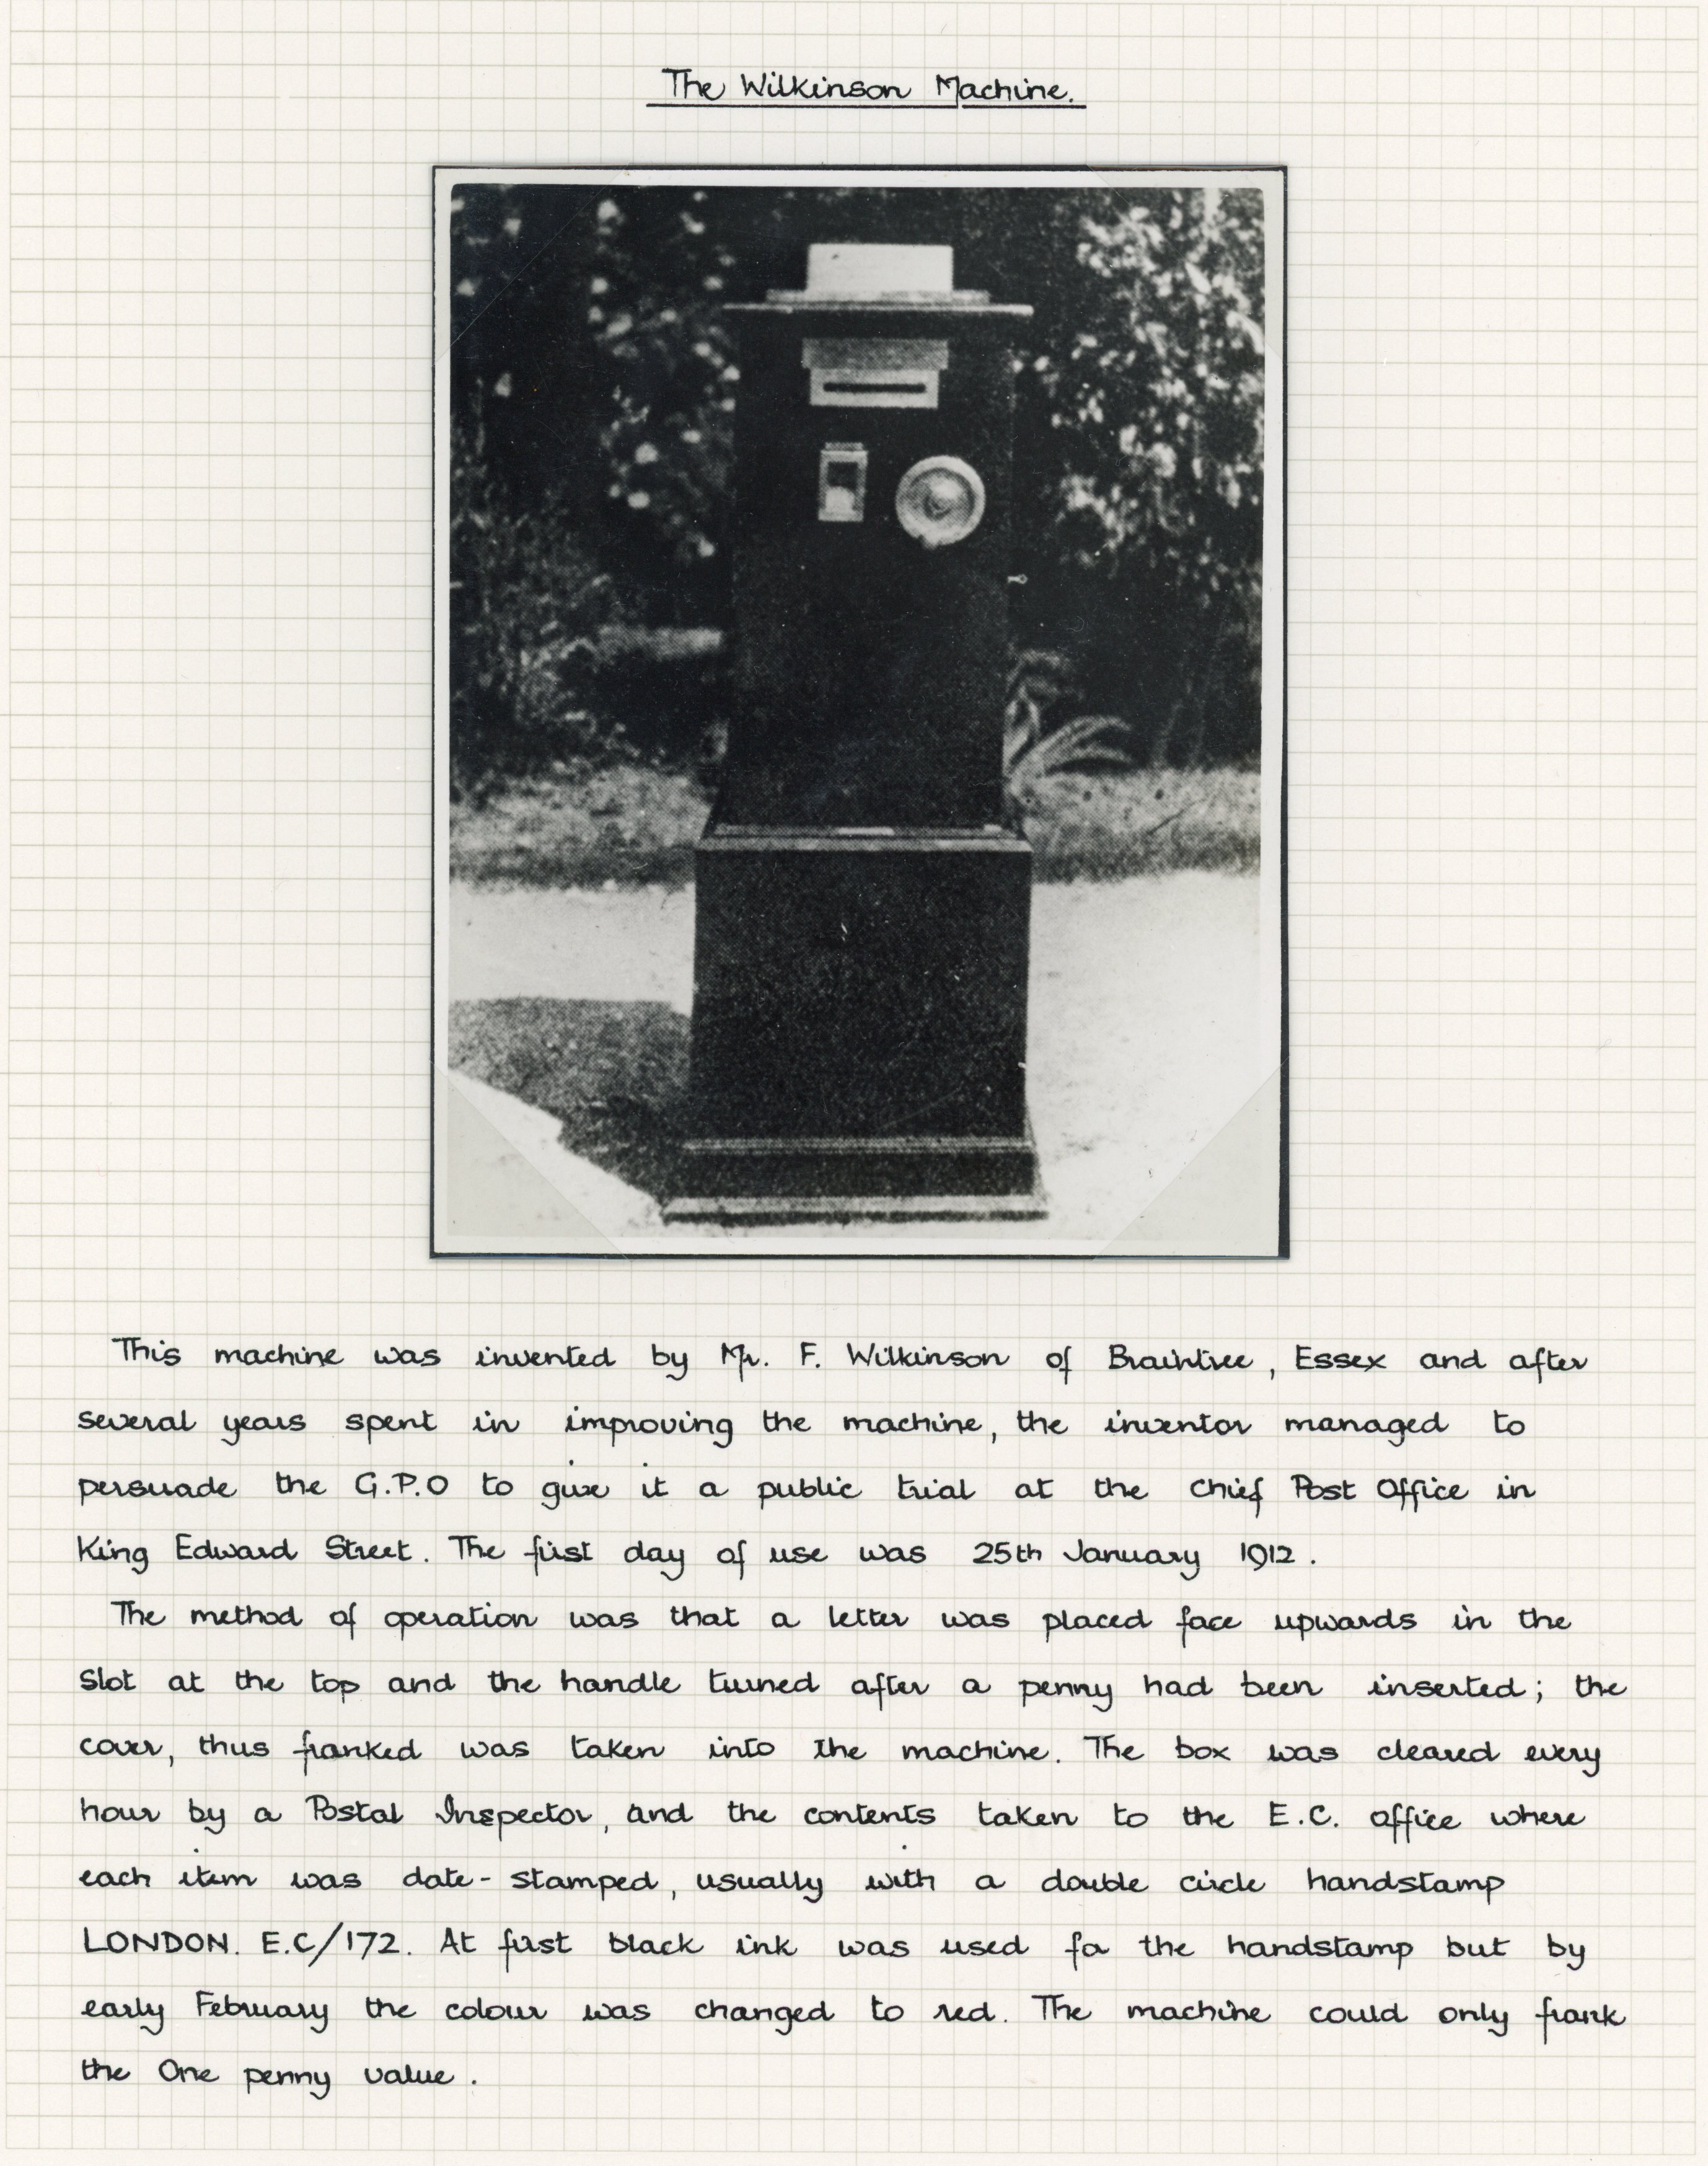 The Wilkinson Machine.
This machine was invented by Mr. F. Wilkinson of Braintree, Essex and after
several years spent in improving the machine, the inventor managed to
persuade the G.P.O to give it a public trial at the Chief Post Office in
King Edward Street. The first day of use was 25th January 1912.
The method of operation was that a letter was placed face upwards in the
slot at the top and the handle turned after a penny had been inserted; the
cover, thus franked was taken into the machine. The box was cleared every
hour by a Postal Inspector, and the contents taken to the E.C. office where
each item was date-stamped, usually with a double circle handstamp
LONDON. E.C/172. At first black ink was used for the handstamp but by
early February the colour was changed to red. The machine could only frank
the One penny value.